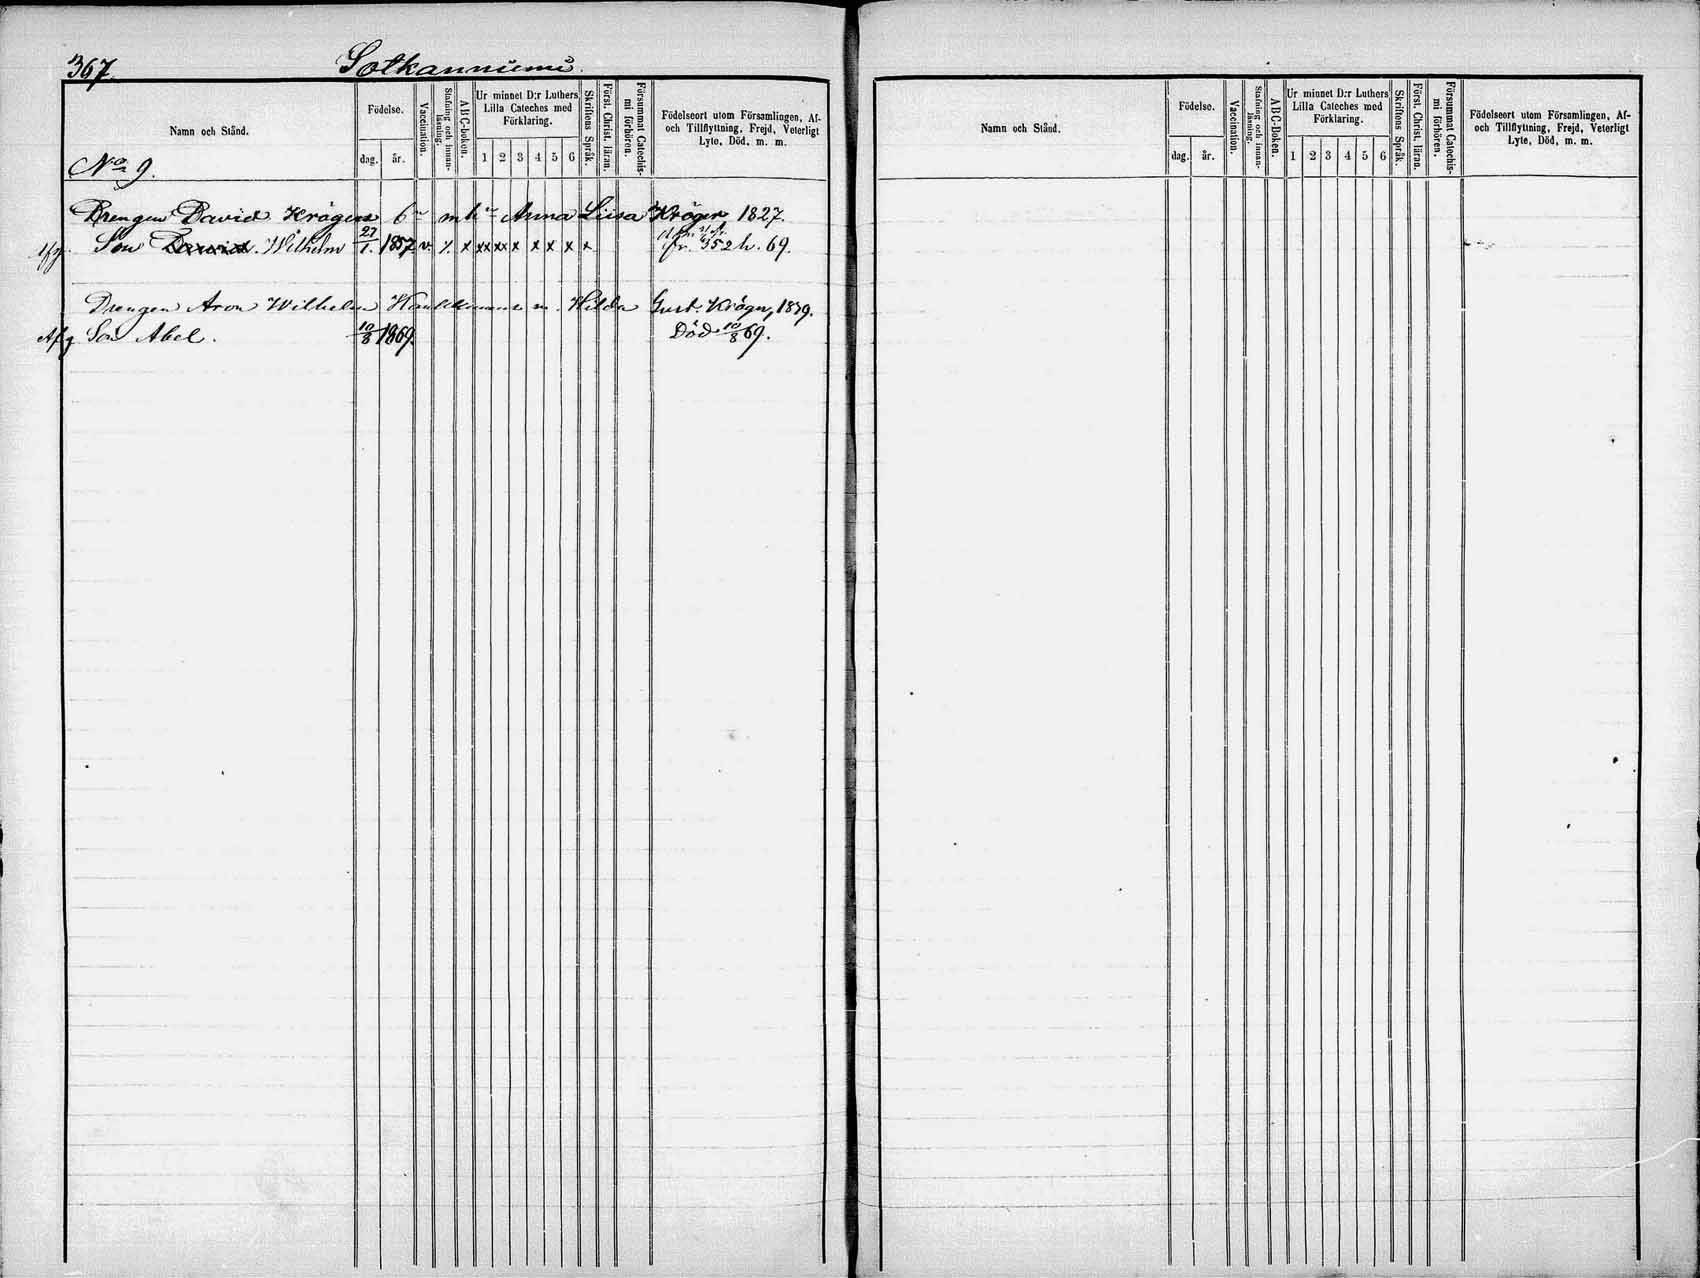 367. Sotkanniemi.
Namn och Stånd.
Födelse.
dag. år.
Vaccination.
Stafning och innanläsning.
ABC-boken.
Ur minnet D:r Luthers Lilla Cateches med Förklaring.
1 2 3 4 5 6
Skriftens Språk.
Först. Christ. läran.
Försummat Catechismi förhören.
Födelseort utom Församlingen, Af- och Tillflyttning, Frejd, Veterligt Lyte, Död, m. m.
No 9.
Drengen David Krögers 6 m h Anna Liisa Kröger 1827.
Son David Wilhelm 27/1. 1857. v. x xx xx x x x x x fr. 352 h. 69.
Drengen Aron Wilhelm m. Hilda Gust. Kröger, 1839.
Afg Son Abel. 10/8 1869. Död 10/8 69.
Namn och Stånd.
Födelse.
dag. år.
Vaccination.
Stafning och innanläsning.
ABC-Boken.
Ur minnet D:r Luthers Lilla Cateches med Förklaring.
1 2 3 4 5 6
Skriftens Språk.
Först. Christ. läran.
Försummat Catechismi förhören.
Födelseort utom Församlingen, Af- och Tillflyttning, Frejd, Veterligt Lyte, Död, m. m.